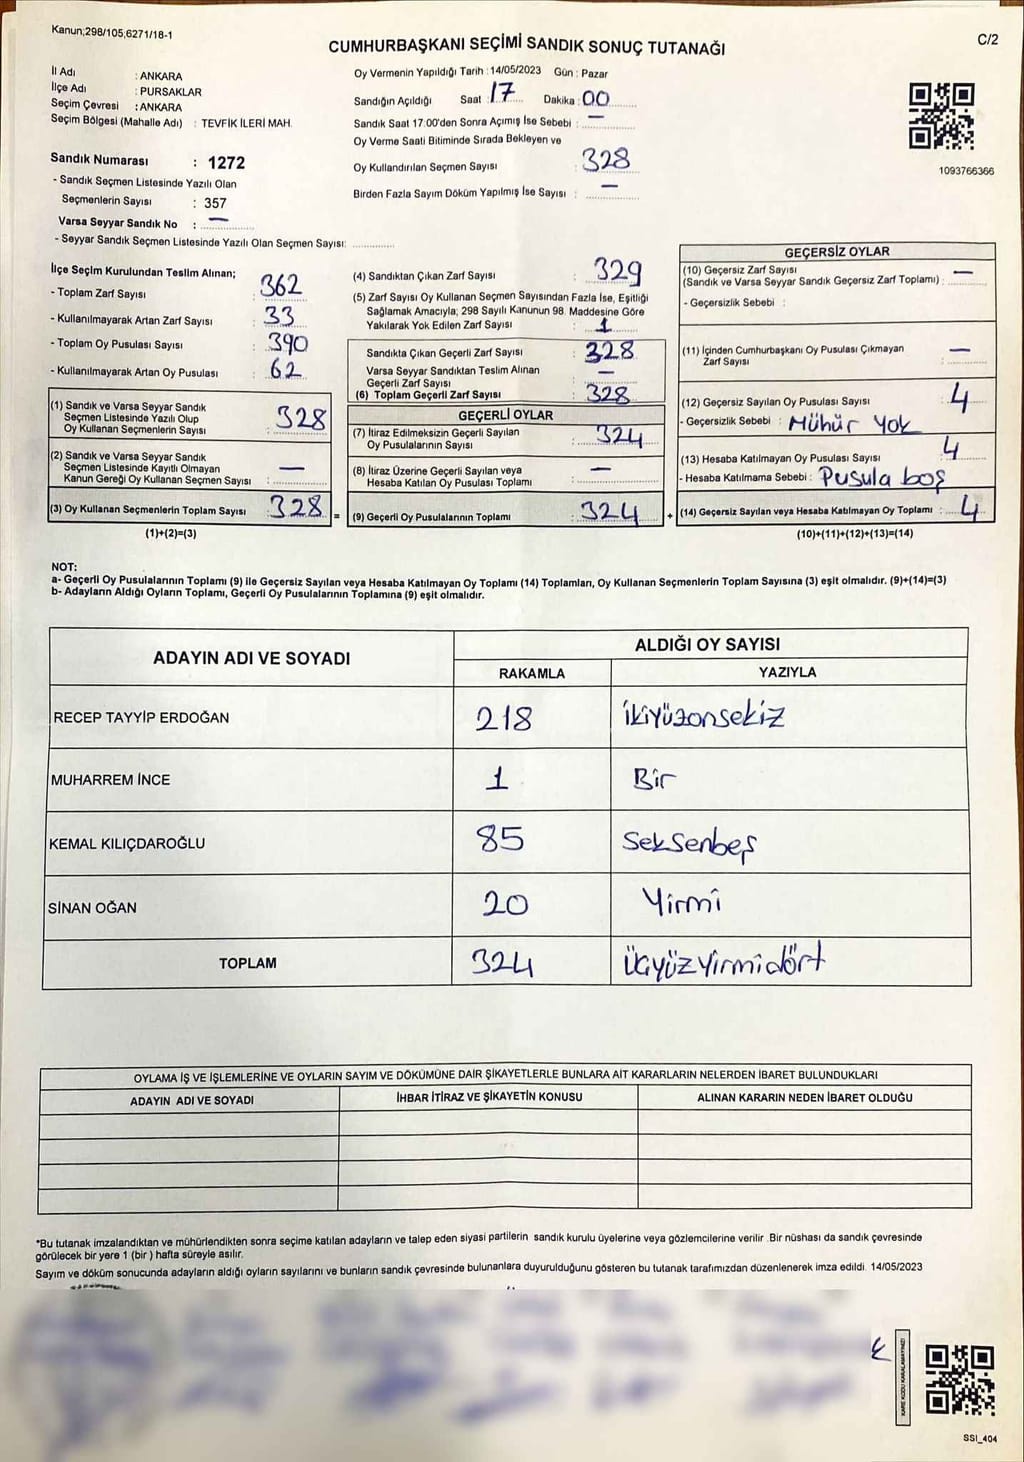 Kanun;298/105;6271/18-1
CUMHURBAŞKANI SEÇİMİ SANDIK SONUÇ TUTANAĞI
C/2
İl Adı : ANKARA
İlçe Adı : PURSAKLAR
Seçim Çevresi : ANKARA
Seçim Bölgesi (Mahalle Adı) : TEVFİK İLERİ MAH.
Sandık Numarası : 1272
- Sandık Seçmen Listesinde Yazılı Olan
Seçmenlerin Sayısı : 357
Varsa Seyyar Sandık No : —
- Seyyar Sandık Seçmen Listesinde Yazılı Olan Seçmen Sayısı:
Oy Vermenin Yapıldığı Tarih : 14/05/2023 Gün : Pazar
Sandığın Açıldığı Saat : 17 Dakika : 00
Sandık Saat 17.00'den Sonra Açımış İse Sebebi : —
Oy Verme Saati Bitiminde Sırada Bekleyen ve
Oy Kullandırılan Seçmen Sayısı : 328
Birden Fazla Sayım Döküm Yapılmış İse Sayısı : —
1093766366
İlçe Seçim Kurulundan Teslim Alınan;
- Toplam Zarf Sayısı : 362
- Kullanılmayarak Artan Zarf Sayısı : 33
- Toplam Oy Pusulası Sayısı : 390
- Kullanılmayarak Artan Oy Pusulası : 62
(1) Sandık ve Varsa Seyyar Sandık
Seçmen Listesinde Yazılı Olup
Oy Kullanan Seçmenlerin Sayısı : 328
(2) Sandık ve Varsa Seyyar Sandık
Seçmen Listesinde Kayıtlı Olmayan
Kanun Gereği Oy Kullanan Seçmen Sayısı : —
(3) Oy Kullanan Seçmenlerin Toplam Sayısı : 328 =
(1)+(2)=(3)
(4) Sandıktan Çıkan Zarf Sayısı : 329
(5) Zarf Sayısı Oy Kullanan Seçmen Sayısından Fazla İse, Eşitliği
Sağlamak Amacıyla; 298 Sayılı Kanunun 98. Maddesine Göre
Yakılarak Yok Edilen Zarf Sayısı : 1
Sandıkta Çıkan Geçerli Zarf Sayısı : 328
Varsa Seyyar Sandıktan Teslim Alınan
Geçerli Zarf Sayısı : —
(6) Toplam Geçerli Zarf Sayısı : 328
GEÇERLİ OYLAR
(7) İtiraz Edilmeksizin Geçerli Sayılan
Oy Pusulalarının Sayısı : 324
(8) İtiraz Üzerine Geçerli Sayılan veya
Hesaba Katılan Oy Pusulası Toplamı : —
(9) Geçerli Oy Pusulalarının Toplamı : 324 +
GEÇERSİZ OYLAR
(10) Geçersiz Zarf Sayısı
(Sandık ve Varsa Seyyar Sandık Geçersiz Zarf Toplamı) : —
- Geçersizlik Sebebi :
(11) İçinden Cumhurbaşkanı Oy Pusulası Çıkmayan
Zarf Sayısı : —
(12) Geçersiz Sayılan Oy Pusulası Sayısı : 4
- Geçersizlik Sebebi : Mühür Yok
(13) Hesaba Katılmayan Oy Pusulası Sayısı : 4
- Hesaba Katılmama Sebebi : Pusula boş
(14) Geçersiz Sayılan veya Hesaba Katılmayan Oy Toplamı : 4
(10)+(11)+(12)+(13)=(14)
NOT:
a- Geçerli Oy Pusulalarının Toplamı (9) ile Geçersiz Sayılan veya Hesaba Katılmayan Oy Toplamı (14) Toplamları, Oy Kullanan Seçmenlerin Toplam Sayısına (3) eşit olmalıdır. (9)+(14)=(3)
b- Adayların Aldığı Oyların Toplamı, Geçerli Oy Pusulalarının Toplamına (9) eşit olmalıdır.
ADAYIN ADI VE SOYADI
ALDIĞI OY SAYISI
RAKAMLA YAZIYLA
RECEP TAYYİP ERDOĞAN 218 ikiyüzonsekiz
MUHARREM İNCE 1 Bir
KEMAL KILIÇDAROĞLU 85 Seksenbeş
SİNAN OĞAN 20 Yirmi
TOPLAM 324 Üçyüzyirmidört
OYLAMA İŞ VE İŞLEMLERİNE VE OYLARIN SAYIM VE DÖKÜMÜNE DAİR ŞİKAYETLERLE BUNLARA AİT KARARLARIN NELERDEN İBARET BULUNDUKLARI
ADAYIN ADI VE SOYADI İHBAR İTİRAZ VE ŞİKAYETİN KONUSU ALINAN KARARIN NEDEN İBARET OLDUĞU
*Bu tutanak imzalandıktan ve mühürlendikten sonra seçime katılan adayların ve talep eden siyasi partilerin sandık kurulu üyelerine veya gözlemcilerine verilir .Bir nüshası da sandık çevresinde
görülecek bir yere 1 (bir ) hafta süreyle asılır.
Sayım ve döküm sonucunda adayların aldığı oyların sayılarını ve bunların sandık çevresinde bulunanlara duyurulduğunu gösteren bu tutanak tarafımızdan düzenlenerek imza edildi. 14/05/2023
KARE KODU KARALAMAYINIZ!
SSI_404